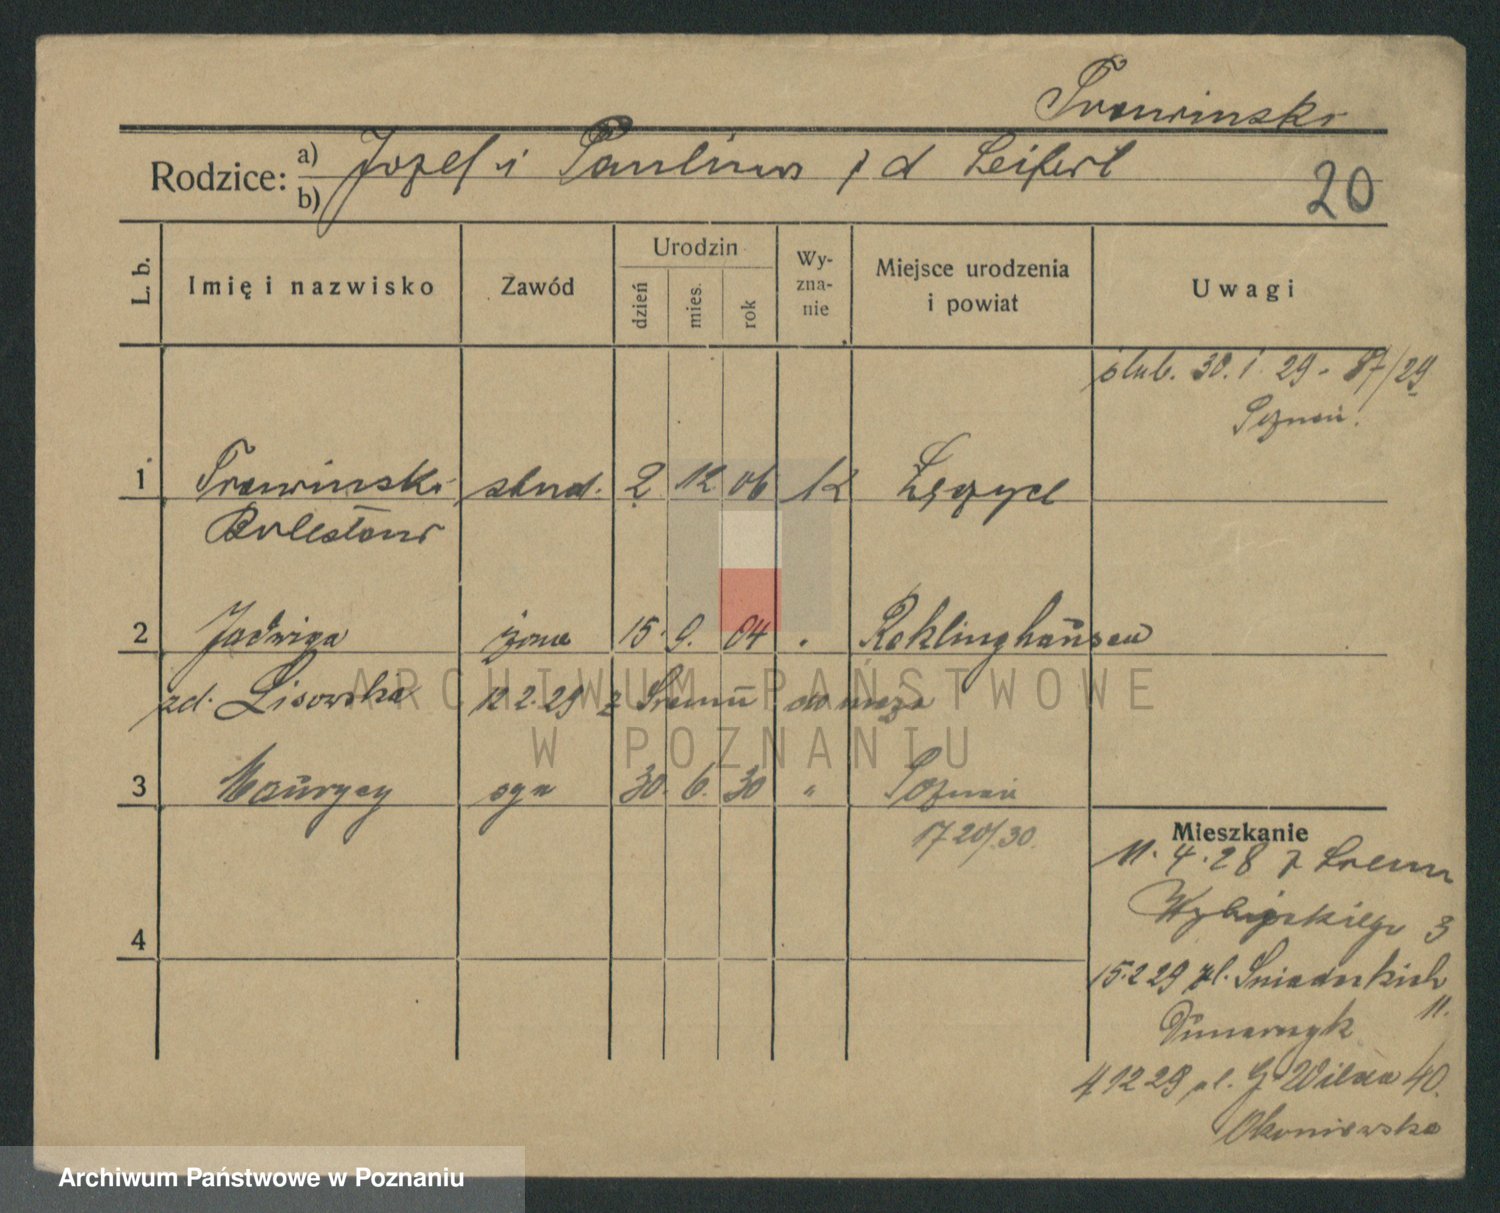 Trawinski
Rodzice: a) Jozef i Paulina z d Leifert
b)
20
L. b.
Imię i nazwisko
Zawód
Urodzin
dzień
mies.
rok
Wy-
zna-
nie
Miejsce urodzenia
i powiat
Uwagi
ślub. 30. 1. 29 - 87/29
Poznań.
1 Trawinski stud. 2 12 06 Łęczyca
Bolesław
2 Jadwiga żona 15. 9. 04 " Reklinghausen
zd. Lisowska 12 2. 29 z Sremu do męża
3 Maurycy syn 30. 6. 30 " Poznań
1720/30.
4
Mieszkanie
11. 4. 28 z Srem
Wybickiego 3
15. 2 29 pl. Sniadeckich
11.
4 12 29 ul. G Wilda 40.
Okoniewska
ARCHIWUM PAŃSTWOWE
W POZNANIU
Archiwum Państwowe w Poznaniu